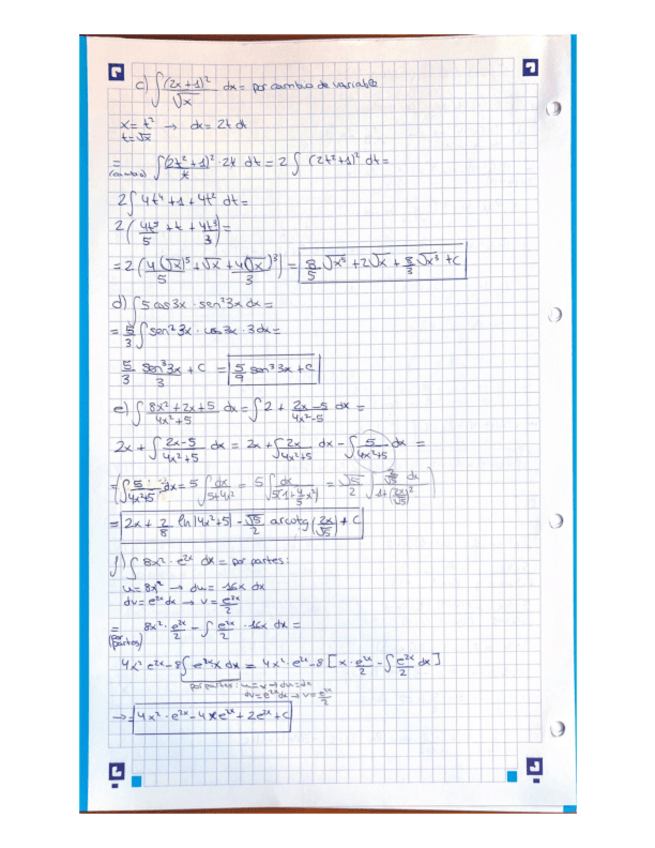 c) ∫ (2x+1)²/√x dx = por cambio de variable
x = t² → dx = 2t dt
t = √x
= (cambio) ∫ (2t²+1)²/t · 2t dt = 2 ∫ (2t²+1)² dt =
2 ∫ 4t⁴ + 1 + 4t² dt =
2 ( 4t⁵/5 + t + 4t³/3 ) =
= 2 ( 4(√x)⁵/5 + √x + 4(√x)³/3 ) = 8/5 √x⁵ + 2√x + 8/3 √x³ + C
d) ∫ 5 cos 3x · sen² 3x dx =
= 5/3 ∫ sen² 3x · cos 3x · 3 dx =
5/3 sen³ 3x/3 + C = 5/9 sen³ 3x + C
e) ∫ (8x²+2x+5)/(4x²+5) dx = ∫ 2 + (2x-5)/(4x²-5) dx =
2x + ∫ (2x-5)/(4x²+5) dx = 2x + ∫ 2x/(4x²+5) dx - ∫ 5/(4x²+5) dx =
= ( ∫ 5/(4x²+5) dx = 5 ∫ dx/(5+4x²) = 5 ∫ dx/(5(1+4/5 x²)) = √5/2 ∫ (2/√5 dx)/(1+(2x/√5)²) )
= 2x + 2/8 ln|4x²+5| - √5/2 arcotg (2x/√5) + C
f) ∫ 8x² · e²ˣ dx = por partes:
u = 8x² → du = 16x dx
dv = e²ˣ dx → v = e²ˣ/2
= (por partes) 8x² · e²ˣ/2 - ∫ e²ˣ/2 · 16x dx =
4x² e²ˣ - 8 ∫ e²ˣ x dx = 4x² · e²ˣ - 8 [ x · e²ˣ/2 - ∫ e²ˣ/2 dx ]
por partes: u = x → du = dx
dv = e²ˣ dx → v = e²ˣ/2
→ = 4x² · e²ˣ - 4x e²ˣ + 2e²ˣ + C